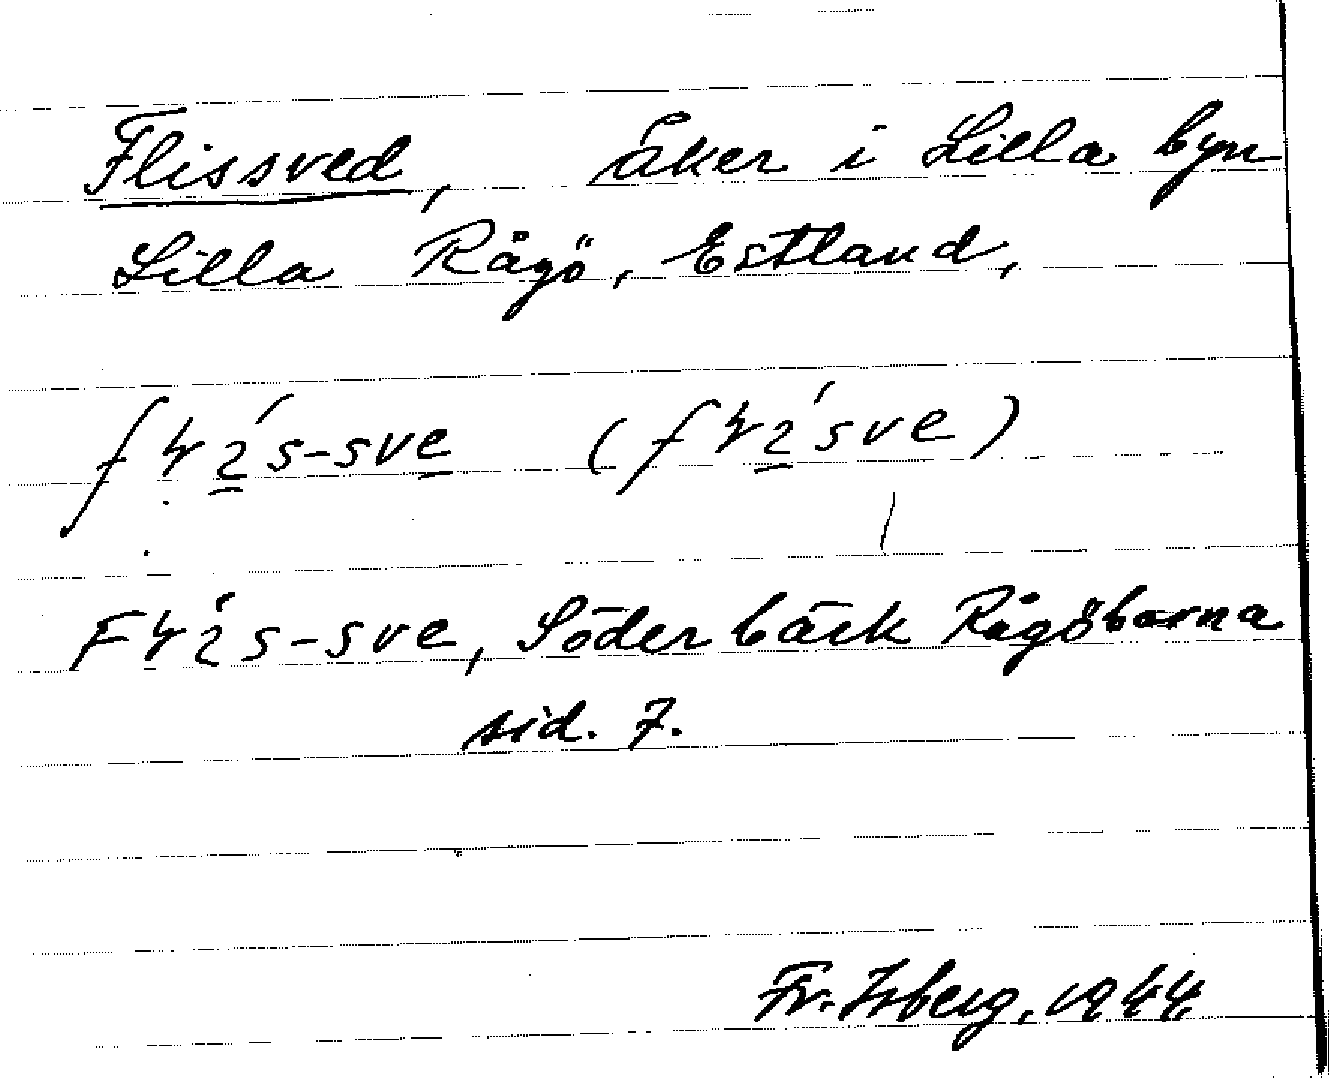 Flissved, åker i Lilla byn
Lilla Rågö, Estland,
sve
Söderbäck Rågöborna
sid. 7.
Fr. Isberg, 1944